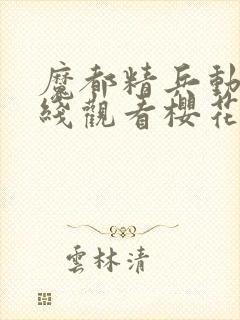 魔都精兵動
綫觀看櫻花
雲林清